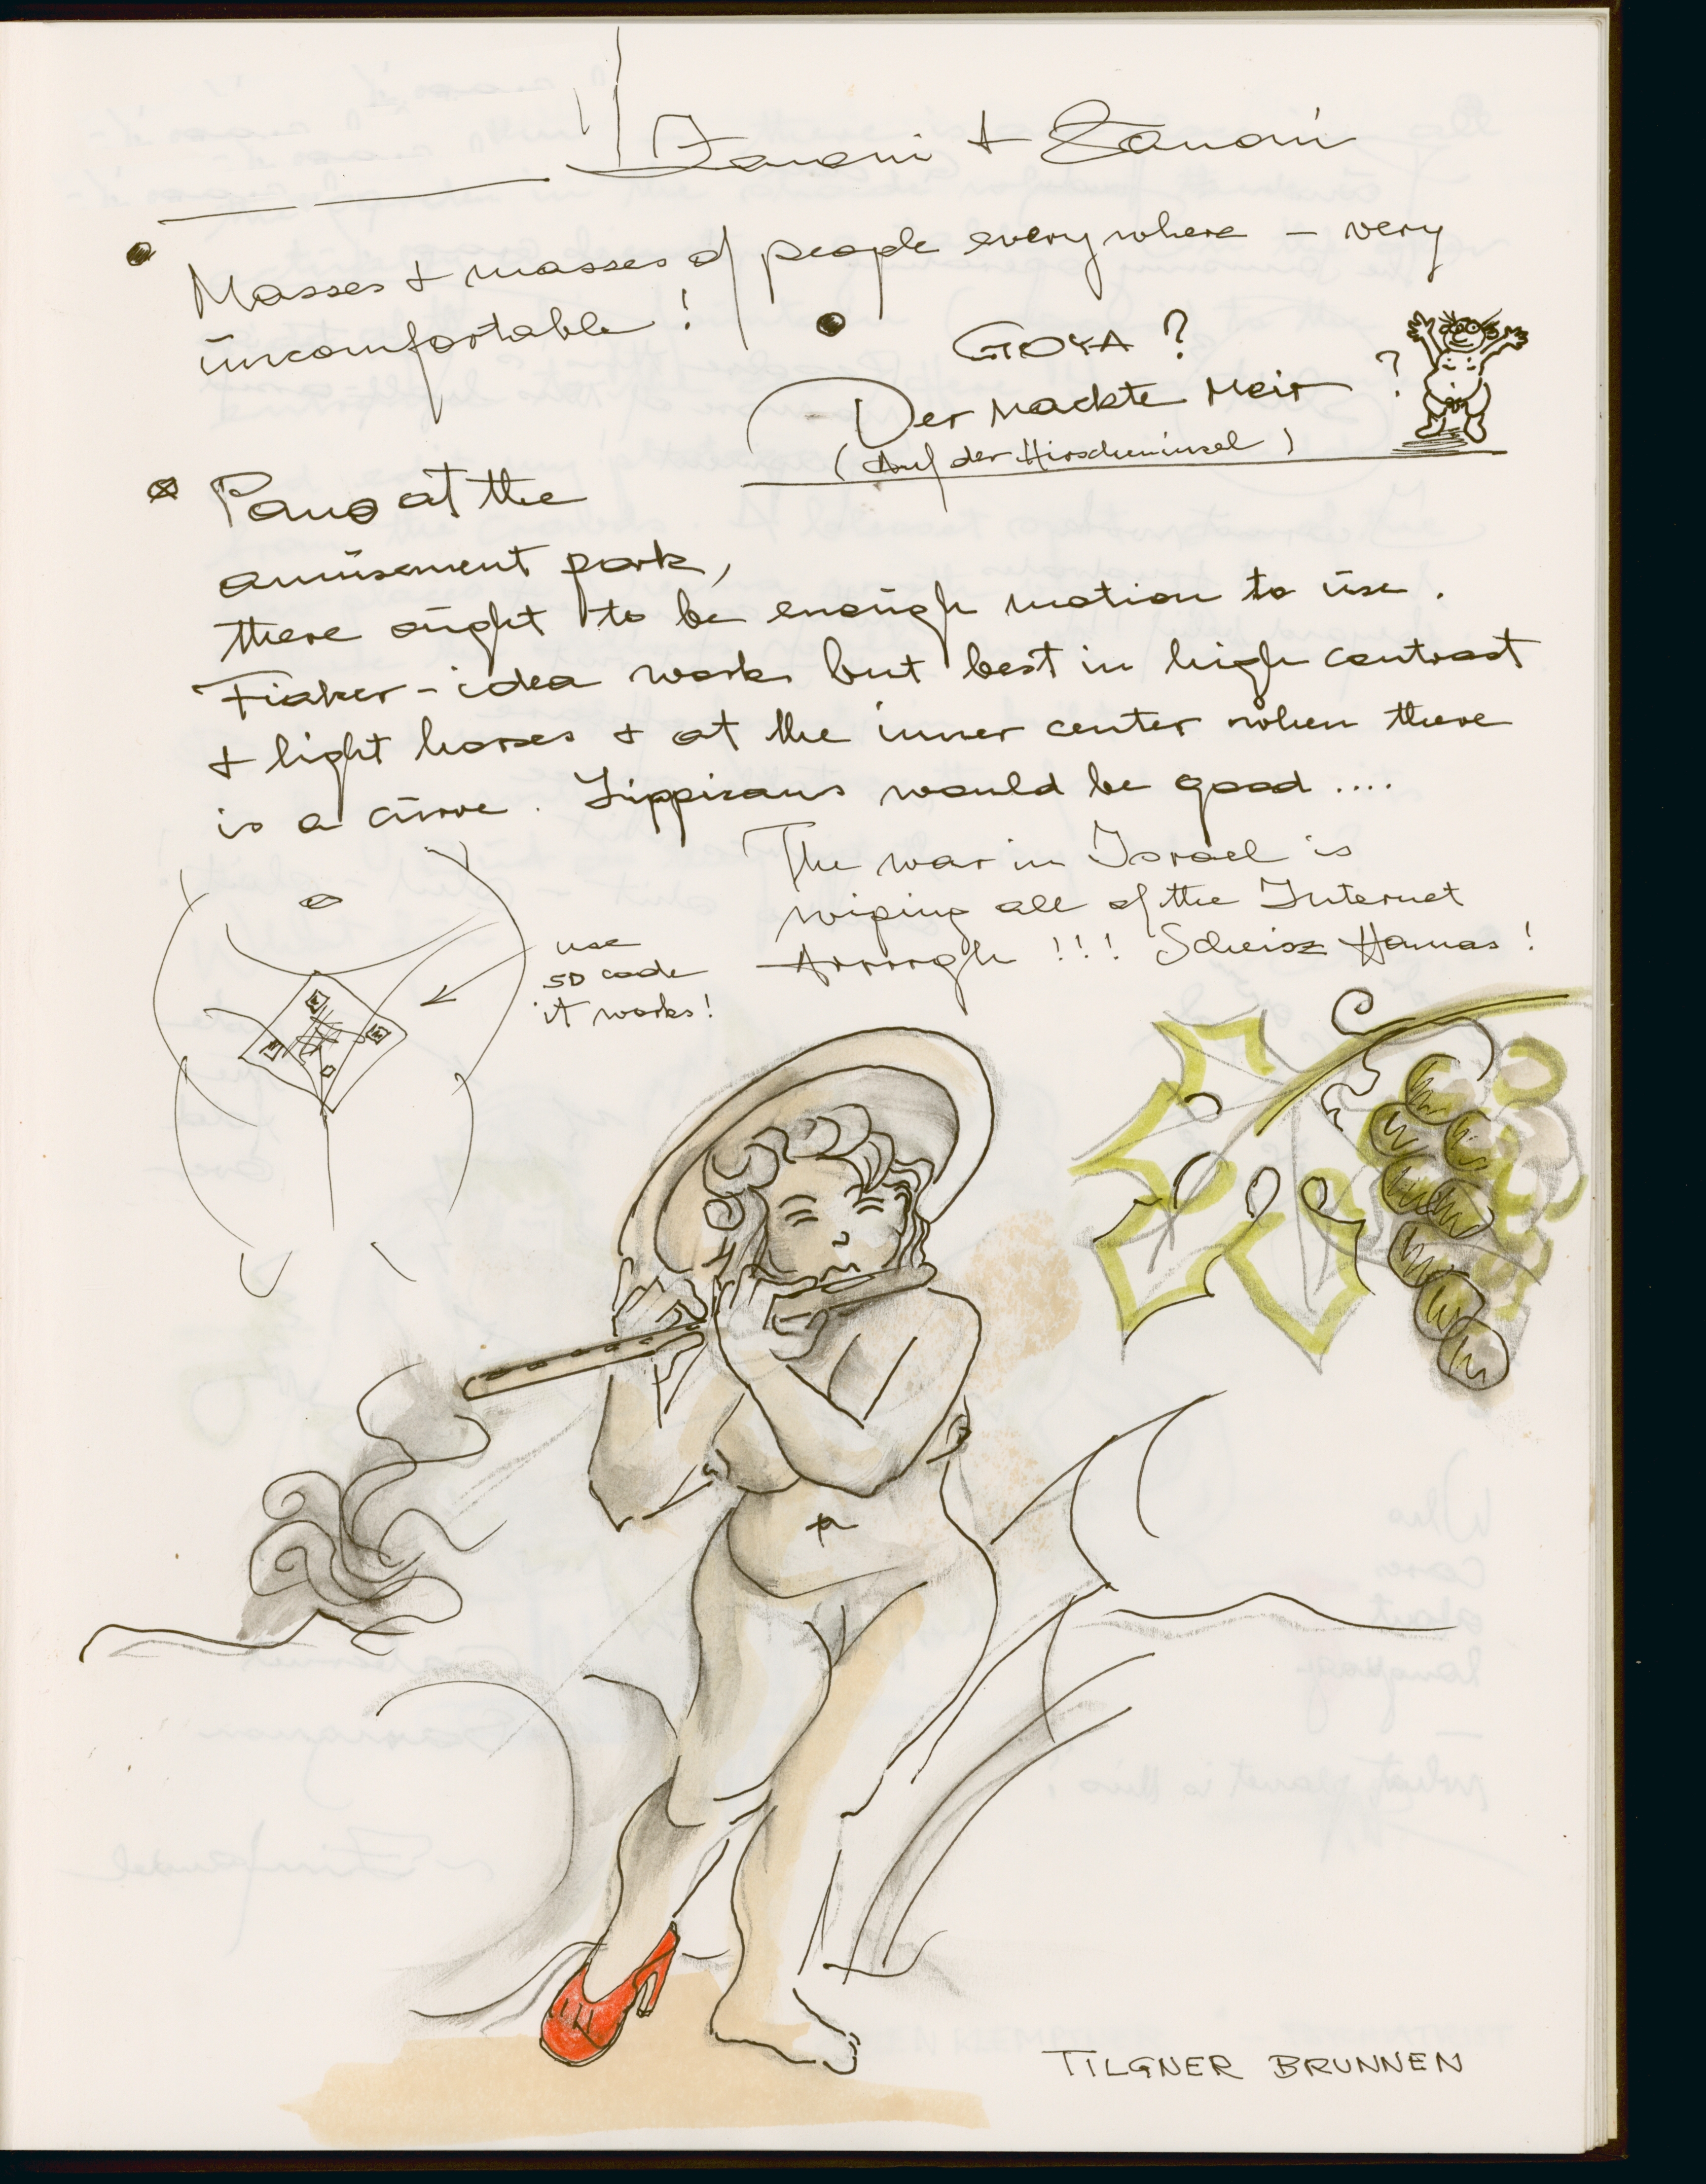 Zanoni + Zanoni
Masses + masses of people everywhere – very
uncomfortable !
GOYA ?
Der nackte Meir ?
(Auf der Hirscheninsel)
Panos at the
amusement park,
there ought to be enough motion to use.
Fiaker-idea works but best in high contrast
+ light horses + at the inner center when there
is a curve. Lippizans would be good ....
The war in Israel is
wiping all of the Internet
Arrrrgh !!! Scheisz Hamas !
use
SD code
it works!
TILGNER BRUNNEN